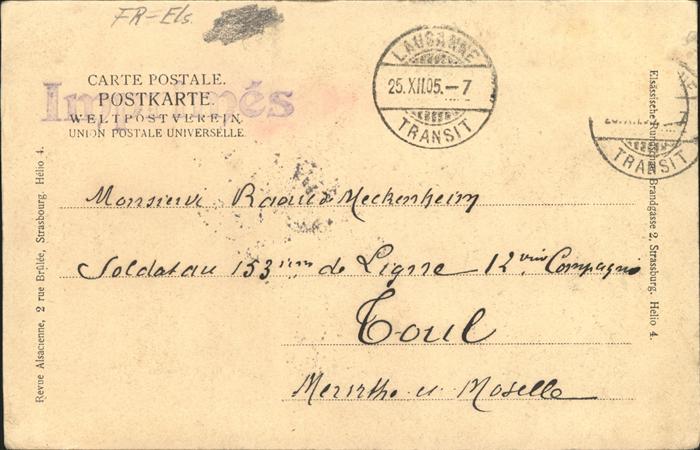 FR-Els.
CARTE POSTALE.
POSTKARTE.
WELTPOSTVEREIN.
UNION POSTALE UNIVERSELLE.
Imprimés
LAUSANNE
25.XII.05.-7
TRANSIT
TRANSIT
Monsieur Raoul Meckenheim
Soldat au 153ième de Ligne 12 Compagnie
Toul
Meurthe et Moselle
Revue Alsacienne, 2 rue Brûlée, Strasbourg. Hélio 4.
Elsässische Rundschau, Brandgasse 2, Strassburg. Helio 4.